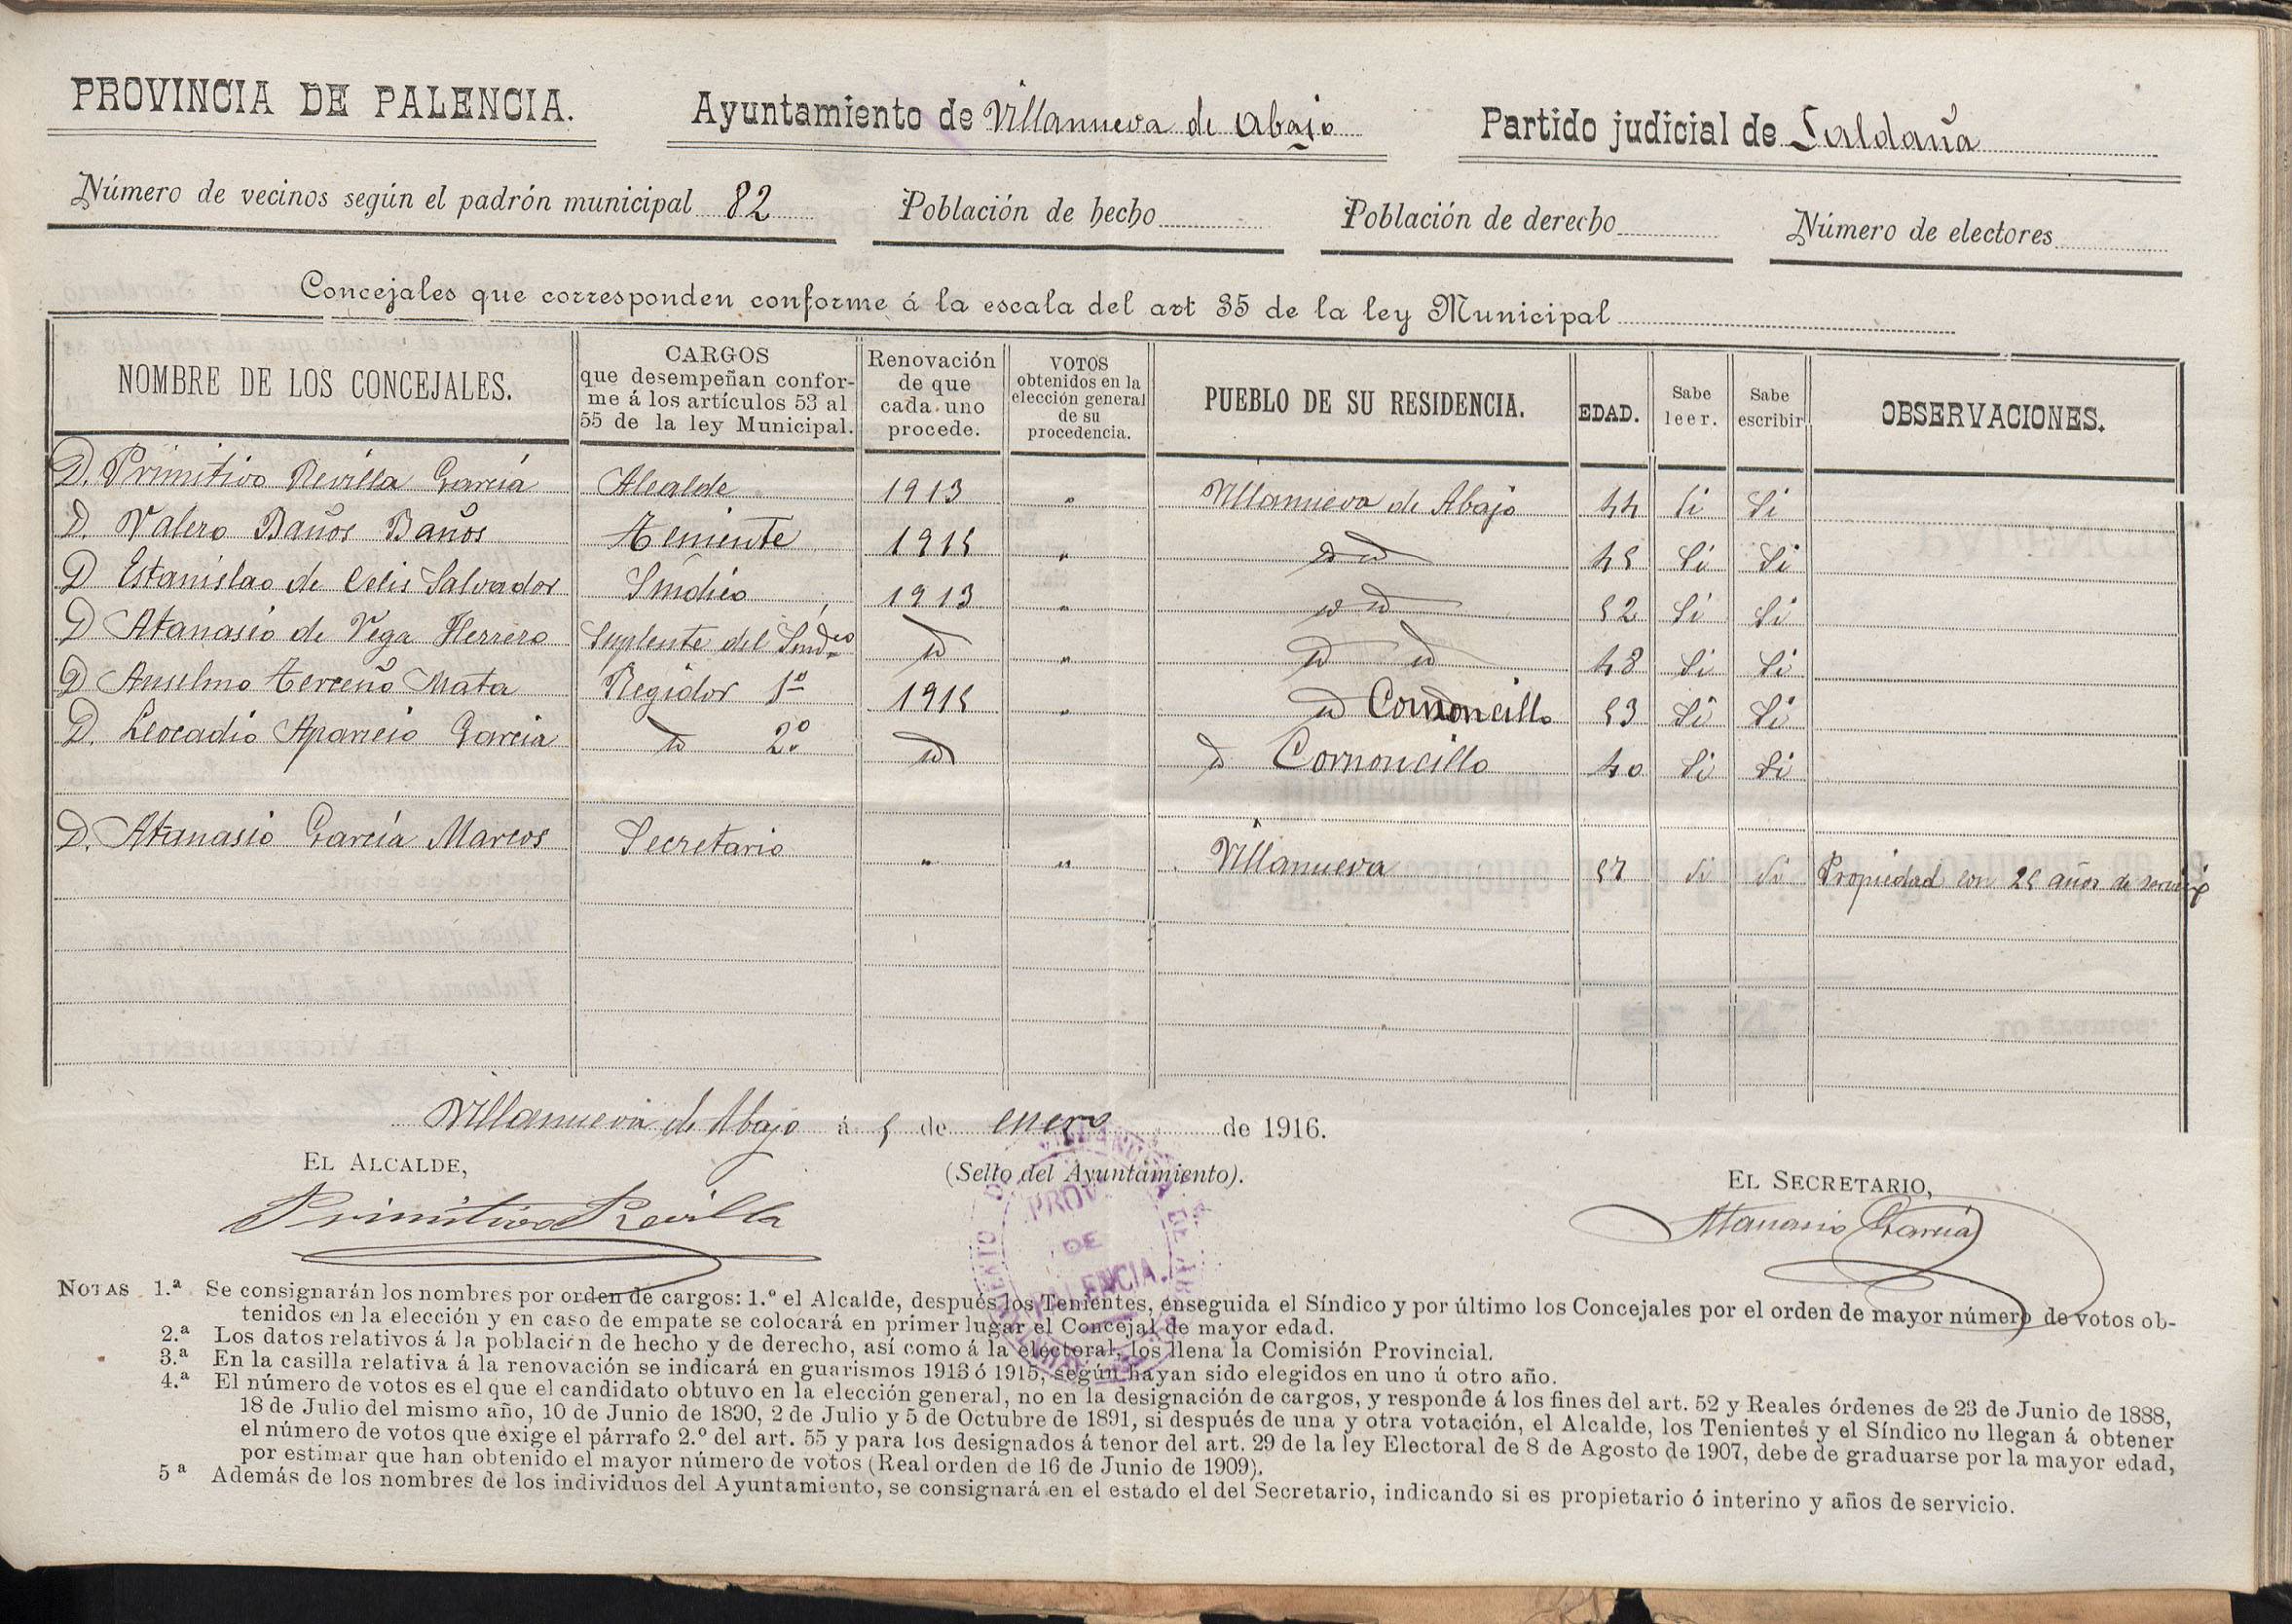 PROVINCIA DE PALENCIA. Ayuntamiento de Villanueva de Abajo Partido judicial de Saldaña
Número de vecinos según el padrón municipal 82 Población de hecho Población de derecho Número de electores
Concejales que corresponden conforme á la escala del art 35 de la ley Municipal
NOMBRE DE LOS CONCEJALES. CARGOS que desempeñan confor- me á los artículos 53 al 55 de la ley Municipal. Renovación de que cada uno procede. VOTOS obtenidos en la elección general de su procedencia. PUEBLO DE SU RESIDENCIA. EDAD. Sabe leer. Sabe escribir OBSERVACIONES.
D. Primitivo Revilla García Alcalde 1913 " Villanueva de Abajo 44 Si Si
D. Valero Baños Baños Teniente 1915 " id id 45 Si Si
D Estanislao de Celis Salvador Sindico 1913 " id id 52 Si Si
D Atanasio de Vega Herrero Suplente del Sindco id " id id 48 Si Si
D Anselmo Terceño Mata Regidor 1º 1915 " id Cornoncillo 53 Si Si
D. Leocadio Aparicio Garcia id 2º id id Cornoncillo 40 Si Si
D. Atanasio García Marcos Secretario " " Villanueva 57 Si Si Propiedad con 25 años de servicio
Villanueva de Abajo á 5 de enero de 1916.
EL ALCALDE, (Sello del Ayuntamiento). EL SECRETARIO,
Primitivo Revilla Atanasio García
PROV. DE PALENCIA.
NOTAS 1.ª Se consignarán los nombres por orden de cargos: 1.º el Alcalde, después los Tenientes, enseguida el Síndico y por último los Concejales por el orden de mayor número de votos ob-
tenidos en la elección y en caso de empate se colocará en primer lugar el Concejal de mayor edad.
2.ª Los datos relativos á la población de hecho y de derecho, así como á la electoral, los llena la Comisión Provincial.
3.ª En la casilla relativa á la renovación se indicará en guarismos 1913 ó 1915, según hayan sido elegidos en uno ú otro año.
4.ª El número de votos es el que el candidato obtuvo en la elección general, no en la designación de cargos, y responde á los fines del art. 52 y Reales órdenes de 23 de Junio de 1888,
18 de Julio del mismo año, 10 de Junio de 1890, 2 de Julio y 5 de Octubre de 1891, si después de una y otra votación, el Alcalde, los Tenientes y el Síndico no llegan á obtener
el número de votos que exige el párrafo 2.º del art. 55 y para los designados á tenor del art. 29 de la ley Electoral de 8 de Agosto de 1907, debe de graduarse por la mayor edad,
por estimar que han obtenido el mayor número de votos (Real orden de 16 de Junio de 1909).
5ª Además de los nombres de los individuos del Ayuntamiento, se consignará en el estado el del Secretario, indicando si es propietario ó interino y años de servicio.